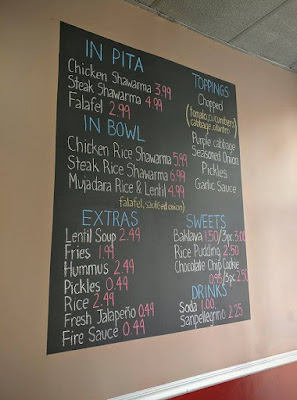 IN PITA
Chicken Shawarma 3.99
Steak Shawarma 4.99
Falafel 2.99
IN BOWL
Chicken Rice Shawarma 5.99
Steak Rice Shawarma 6.99
Mujadara Rice & Lentil 4.99
falafel, sautéed onion)
EXTRAS
Lentil Soup 2.49
Fries 1.99
Hummus 2.49
Pickles 0.49
Rice 2.49
Fresh Jalapeño 0.49
Fire Sauce 0.49
TOPPINGS
Chopped
(tomato, cucumbers,
cabbage, cilantro)
Purple cabbage
Seasoned Onion
Pickles
Garlic Sauce
SWEETS
Baklava 1.50/3pc. 3.00
Rice Pudding 2.50
Chocolate Chip Cookie
0.95/3pc 2.50
DRINKS
Soda 1.00
Sanpellegrino 2.25